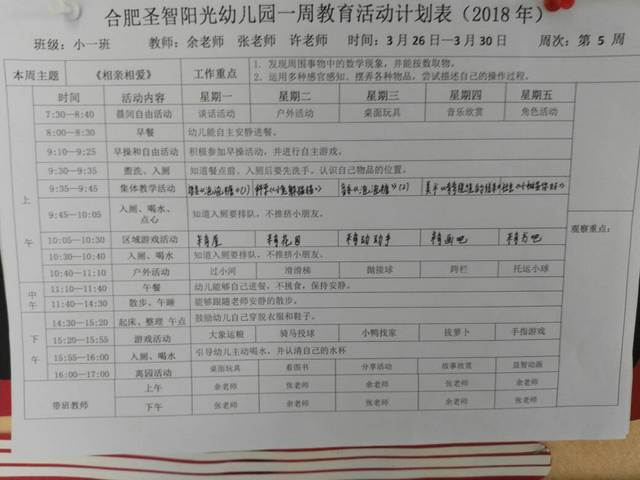 合肥圣智阳光幼儿园一周教育活动计划表（2018 年）
班级：小一班 教师：余老师 张老师 许老师 时间：3 月 26 日—3 月 30 日 周次：第 5 周
本周主题 《相亲相爱》 工作重点 1. 发现周围事物中的数学现象，并能按数取物。
2. 运用多种感官感知、摆弄各种物品，尝试描述自己的操作过程。
时间 活动内容 星期一 星期二 星期三 星期四 星期五
上午
7:30—8:40 晨间自由活动 谈话活动 户外活动 桌面玩具 音乐欣赏 角色活动
8:00—8:30 早餐 幼儿能自主安静进餐。
9:10—9:25 早操和自由活动 积极参加早操活动，并进行自主游戏。
9:30—9:35 盥洗、入厕 知道餐点前、入厕后要先洗手。认识自己物品的位置。
9:35—9:45 集体教学活动
9:45—10:05 入厕、喝水、点心 知道入厕要排队，不推挤小朋友。
观察重点：
10:05—10:30 区域游戏活动
10:30—10:40 入厕、喝水 知道入厕要排队，不推挤小朋友。
10:40—11:10 户外活动 过小河 滑滑梯 抛接球 跨栏 托运小球
中午
11:10—11:40 午餐 幼儿能够自己进餐、不挑食，保持安静。
11:40—14:30 散步、午睡 能够跟随老师安静的散步。
下午
14:30—15:20 起床、整理 午点 鼓励幼儿自己穿脱衣服和鞋子。
15:20—15:55 游戏活动 大象运粮 骑马投球 小鸭找家 拔萝卜 手指游戏
15:55—16:00 入厕、喝水 引导幼儿主动喝水，并认清自己的水杯
16:00—17:00 离园活动 桌面玩具 看图书 分享活动 故事欣赏 益智动画
带班教师 上午 余老师 张老师 余老师 张老师 余老师
下午 张老师 余老师 张老师 余老师 张老师